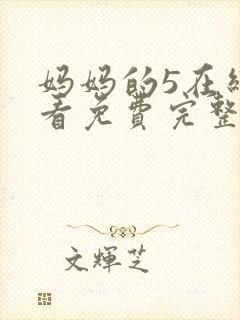 妈妈的5在线
看免费完整
文輝芝